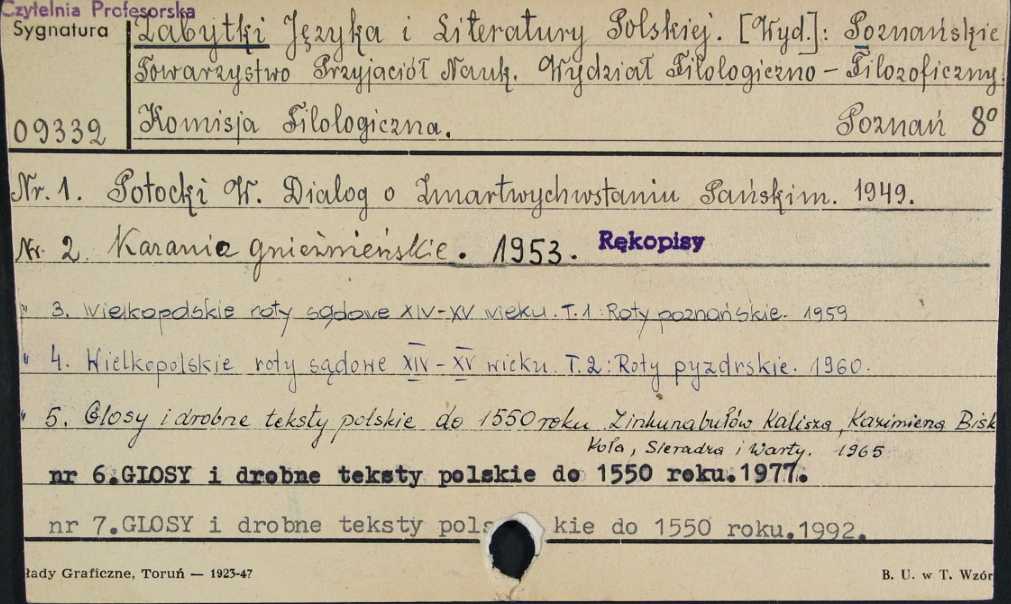 Czytelnia Profesorska
Sygnatura
Zabytki Języka i Literatury Polskiej. [Wyd.]: Poznańskie
Towarzystwo Przyjaciół Nauk. Wydział Filologiczno-Filozoficzny.
09332 Komisja Filologiczna. Poznań 8°
Nr. 1. Potocki W. Dialog o Zmartwychwstaniu Pańskim. 1949.
Nr. 2. Kazania gnieźnieńskie. 1953. Rękopisy
" 3. Wielkopolskie roty sądowe XIV-XV wieku. T.1: Roty poznańskie. 1959
" 4. Wielkopolskie roty sądowe XIV-XV wieku. T.2: Roty pyzdrskie. 1960.
" 5. Glosy i drobne teksty polskie do 1550 roku. Z inkunabułów Kalisza, Kazimierza Bisk
Koła, Sieradza i Warty. 1965
nr 6.GLOSY i drobne teksty polskie do 1550 roku.1977.
nr 7.GLOSY i drobne teksty pols kie do 1550 roku.1992.
łady Graficzne, Toruń — 1923-47 B. U. w T. Wzór